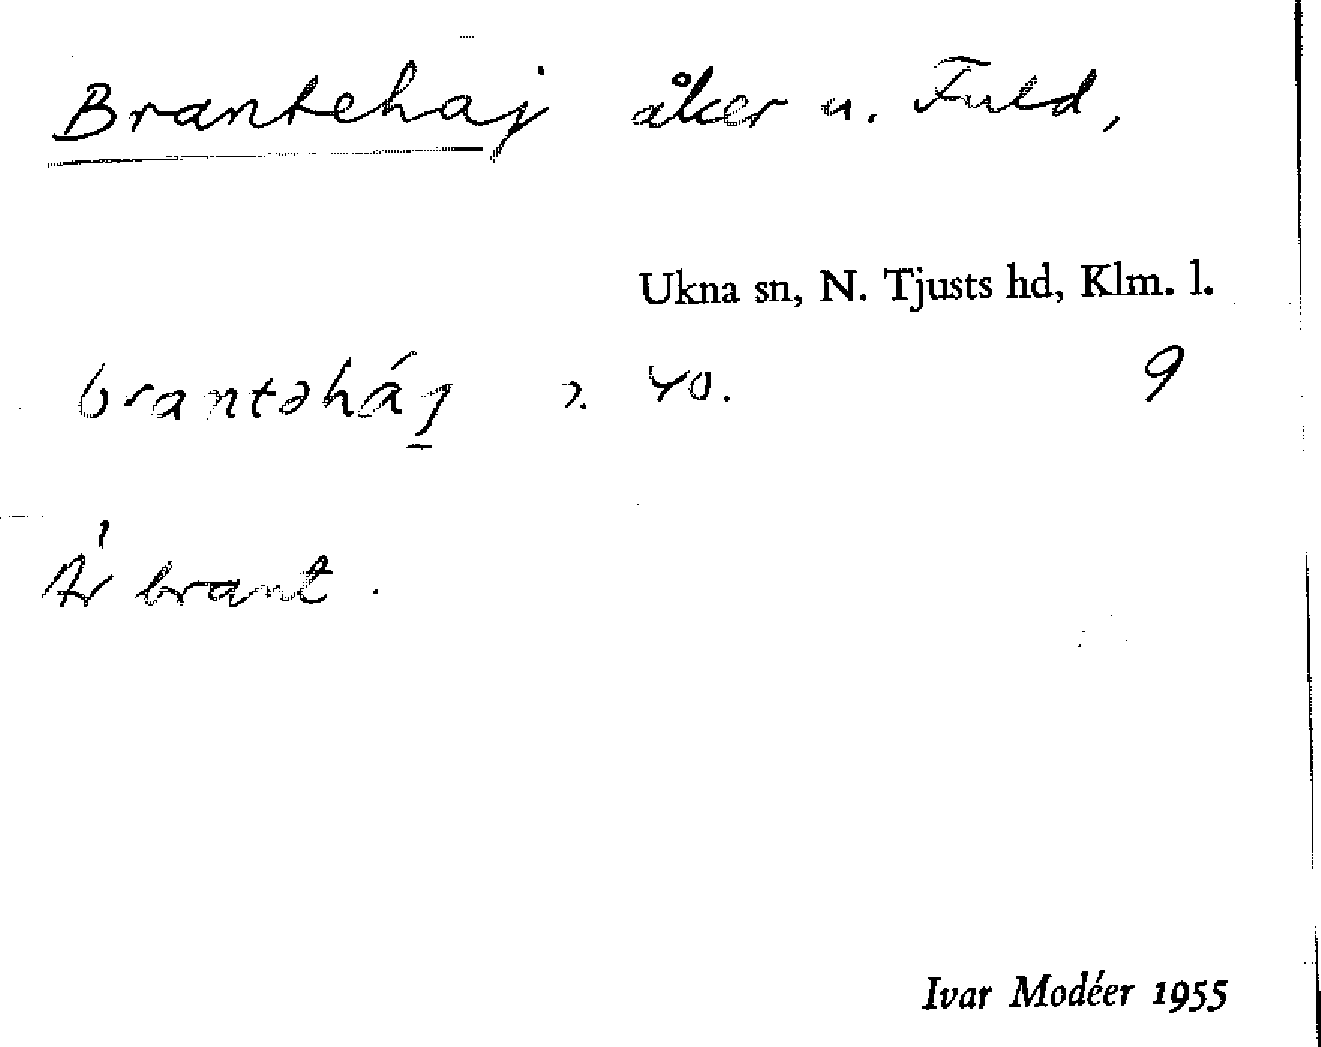 Brantehaj åker u. Fuld,
Ukna sn, N. Tjusts hd, Klm. l.
brantəháj 9
Är brant.
Ivar Modéer 1955